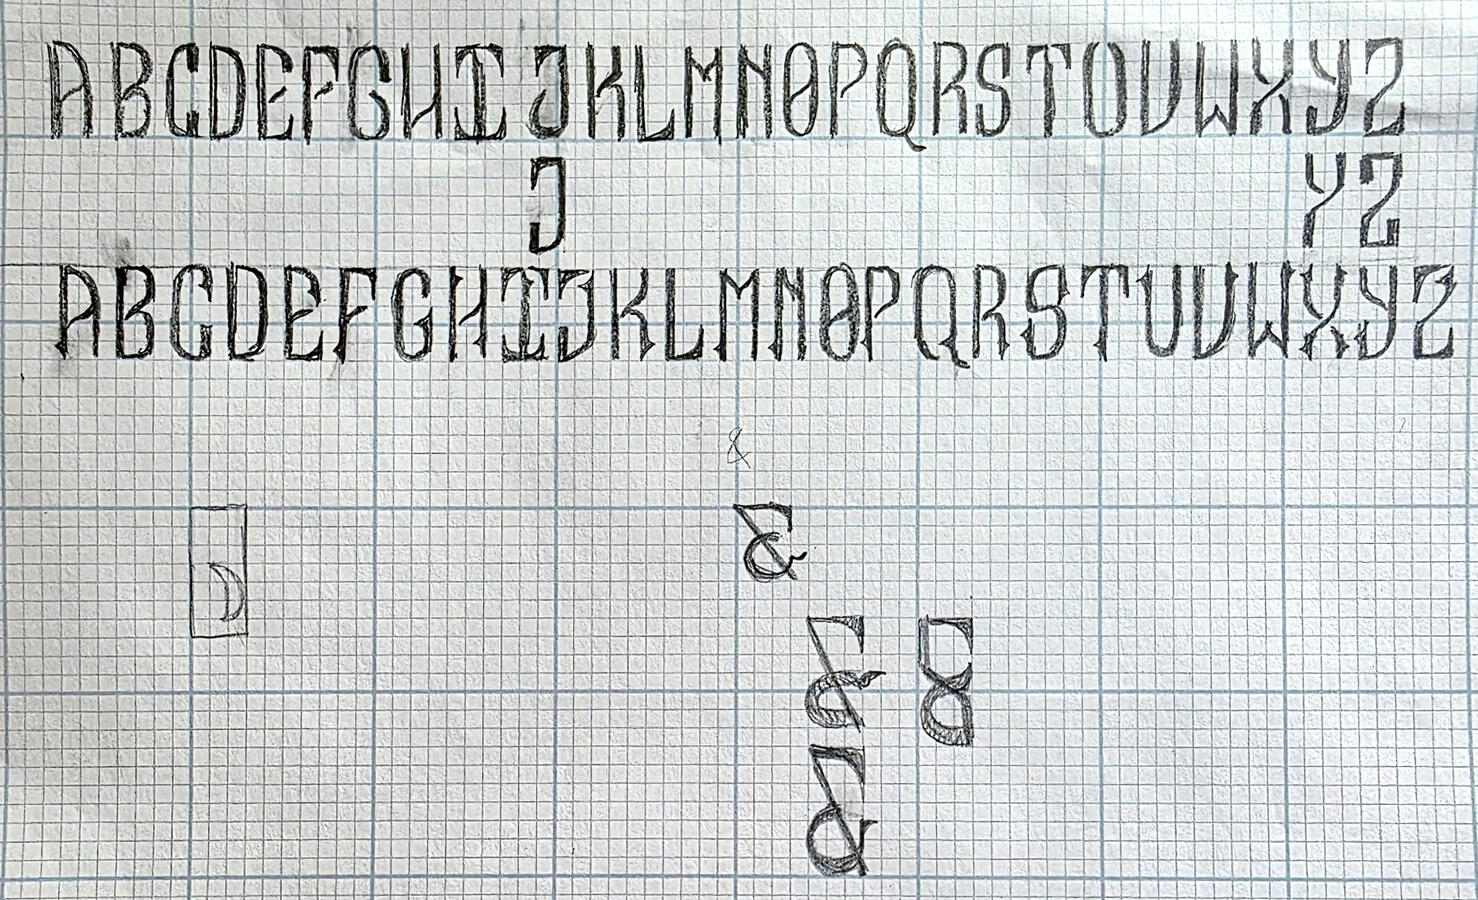 ABCDEFGHIJKLMNOPQRSTUVWXYZ
J YZ
ABCDEFGHIJKLMNOPQRSTUVWXYZ
&
&
& &
&